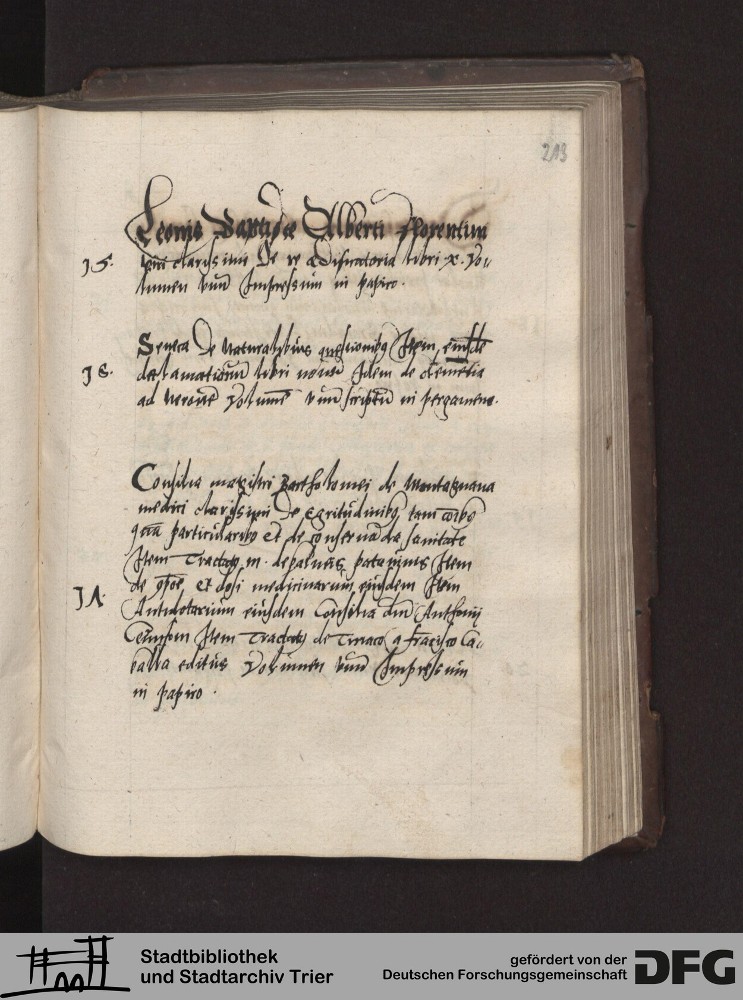 213
Leonis Baptistæ Alberti florentini
J S. viri clarissimi De re ædificatoria libri x. Vo-
lumen unū Impressum in papiro.
Seneca De naturalibus questionibꝫ Item eiusdē
J S. declamationū libri novē Idem de clemētia
ad Neronē Volumē unū scriptū in pergameno.
Consilia magistri Bartholomei de Montagnana
medici clarissimi De egritudinibꝫ tam
particularibꝫ Et de conservanda sanitate
Item Tractatꝫ de balneis patavinis Item
de et dosi medicinarum eiusdem Item
J A. Antidotarium eiusdem Consilia dnī Anthonij
Cermisoni Item Tractatꝫ de Tiriaca a frācisco Ca-
balla editus Volumen unū Impressum
in papiro.
Stadtbibliothek
und Stadtarchiv Trier
gefördert von der
Deutschen Forschungsgemeinschaft
DFG